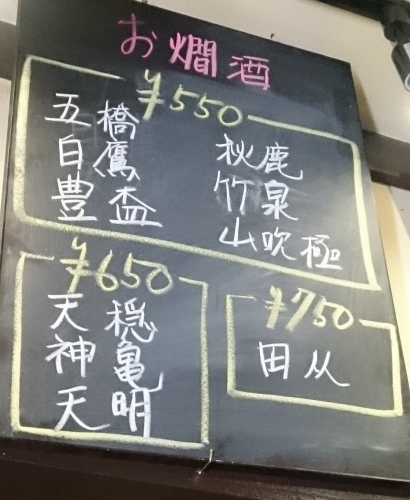 お燗酒
¥550
五橋
白鷹
豊盃
秋鹿
竹泉
山吹極
¥650
天穏
神亀
天明
¥750
田从